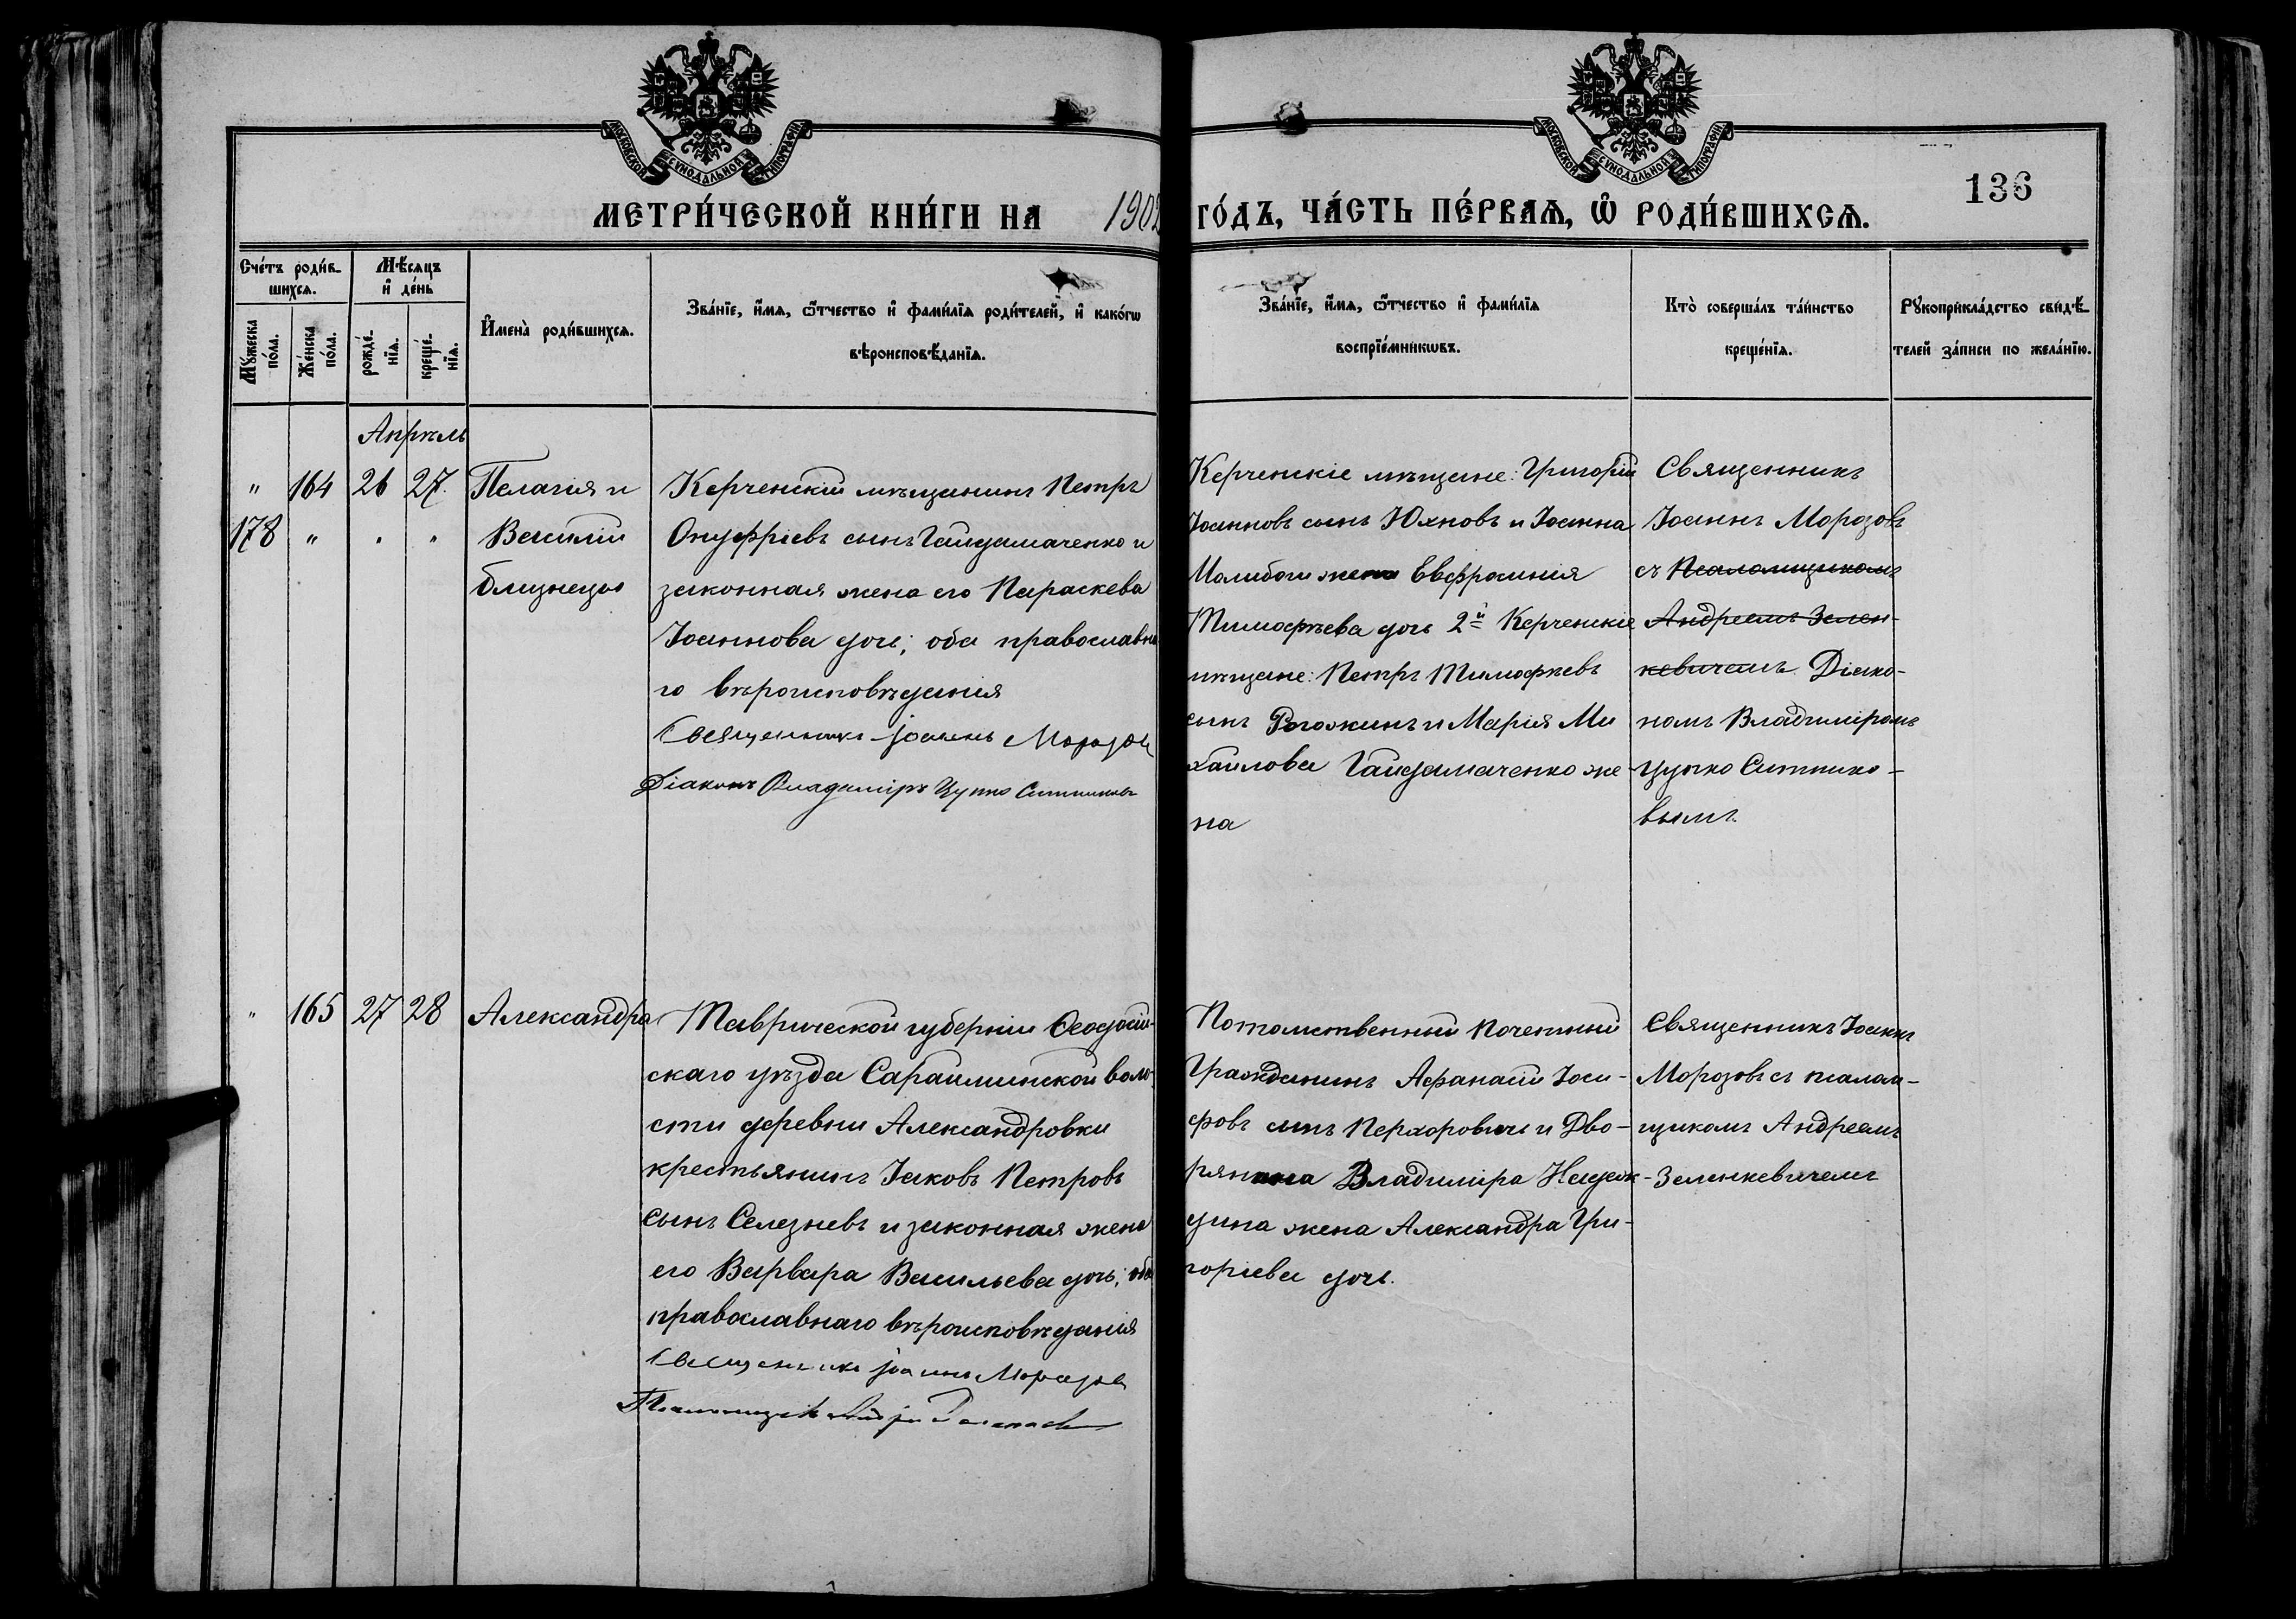 МОСКОВСКОЙ СѴНОДАЛЬНОЙ ТИПОГРАФІИ
МОСКОВСКОЙ СѴНОДАЛЬНОЙ ТИПОГРАФІИ
136
МЕТРИ́ЧЕСКОЙ КНИ́ГИ НА 1902 ГО́ДЪ, ЧА́СТЬ ПЕ́РВАѦ, Ѡ҆ РОДИ́ВШИХСѦ.
Сче́тъ роди́в-
шихсѧ.
Мꙋ́жеска
по́ла.
Же́нска
по́ла.
Мѣ́сѧцъ
и҆ де́нь
рожде́-
нїѧ.
креще́-
нїѧ.
И҆мена̀ роди́вшихсѧ.
Зва́нїе, и҆́мѧ, ѻ҆́тчество и҆ фами́лїѧ роди́телей, и҆ како́гѡ
вѣроисповѣ́данїѧ.
Зва́нїе, и҆́мѧ, ѻ҆́тчество и҆ фами́лїѧ
воспрїе́мникѡвъ.
Кто̀ соверша́лъ та́инство
креще́нїѧ.
Рꙋкоприкла́дство свидѣ́-
телей за́писи по жела́нїю.
Апрѣль
" 164 26 27. Пелагія и
178 " " " Василій
близнецы
Керченскій мѣщанинъ Петръ
Онуфріевъ сынъ Гайдамаченко и
законная жена его Параскева
Іоаннова дочь; оба православна
го вѣроисповѣданія
Священникъ Іоаннъ Морозов
Діаконъ Владиміръ Цупко Ситников
Керченскіе мѣщане: Григорій
Іоанновъ сынъ Юхновъ и Іоанна
Малибоги жена Евфросинія
Тимофѣева дочь 2й Керченскіе
мѣщане: Петръ Тимофѣевъ
сынъ Рогожинъ и Марія Ми
хайлова Гайдамаченко же-
на
Священникъ
Іоаннъ Морозовъ
съ Псаломщикомъ
Андреемъ Зелен-
кевичемъ Діако-
номъ Владиміромъ
Цупко Ситнико-
вымъ
" 165 27 28 Александра
Таврической губерніи Ѳеодосій-
скаго уѣзда Сарайминской воло-
сти деревни Александровки
крестьянинъ Іаковъ Петровъ
сынъ Селезневъ и законная жена
его Варвара Васильева дочь; оба
православнаго вѣроисповѣданія
Священникъ Іоаннъ Морозов
Псаломщикъ Андрей
Потомственный почетный
Гражданинъ Афанасій Іоси-
фовъ сынъ Перхоровичъ и Дво-
рянина Владиміра Надеж-
дина жена Александра Гри-
горіева дочь.
Священникъ Іоаннъ
Морозовъ съ псалом-
щикомъ Андреемъ
Зеленкевичемъ